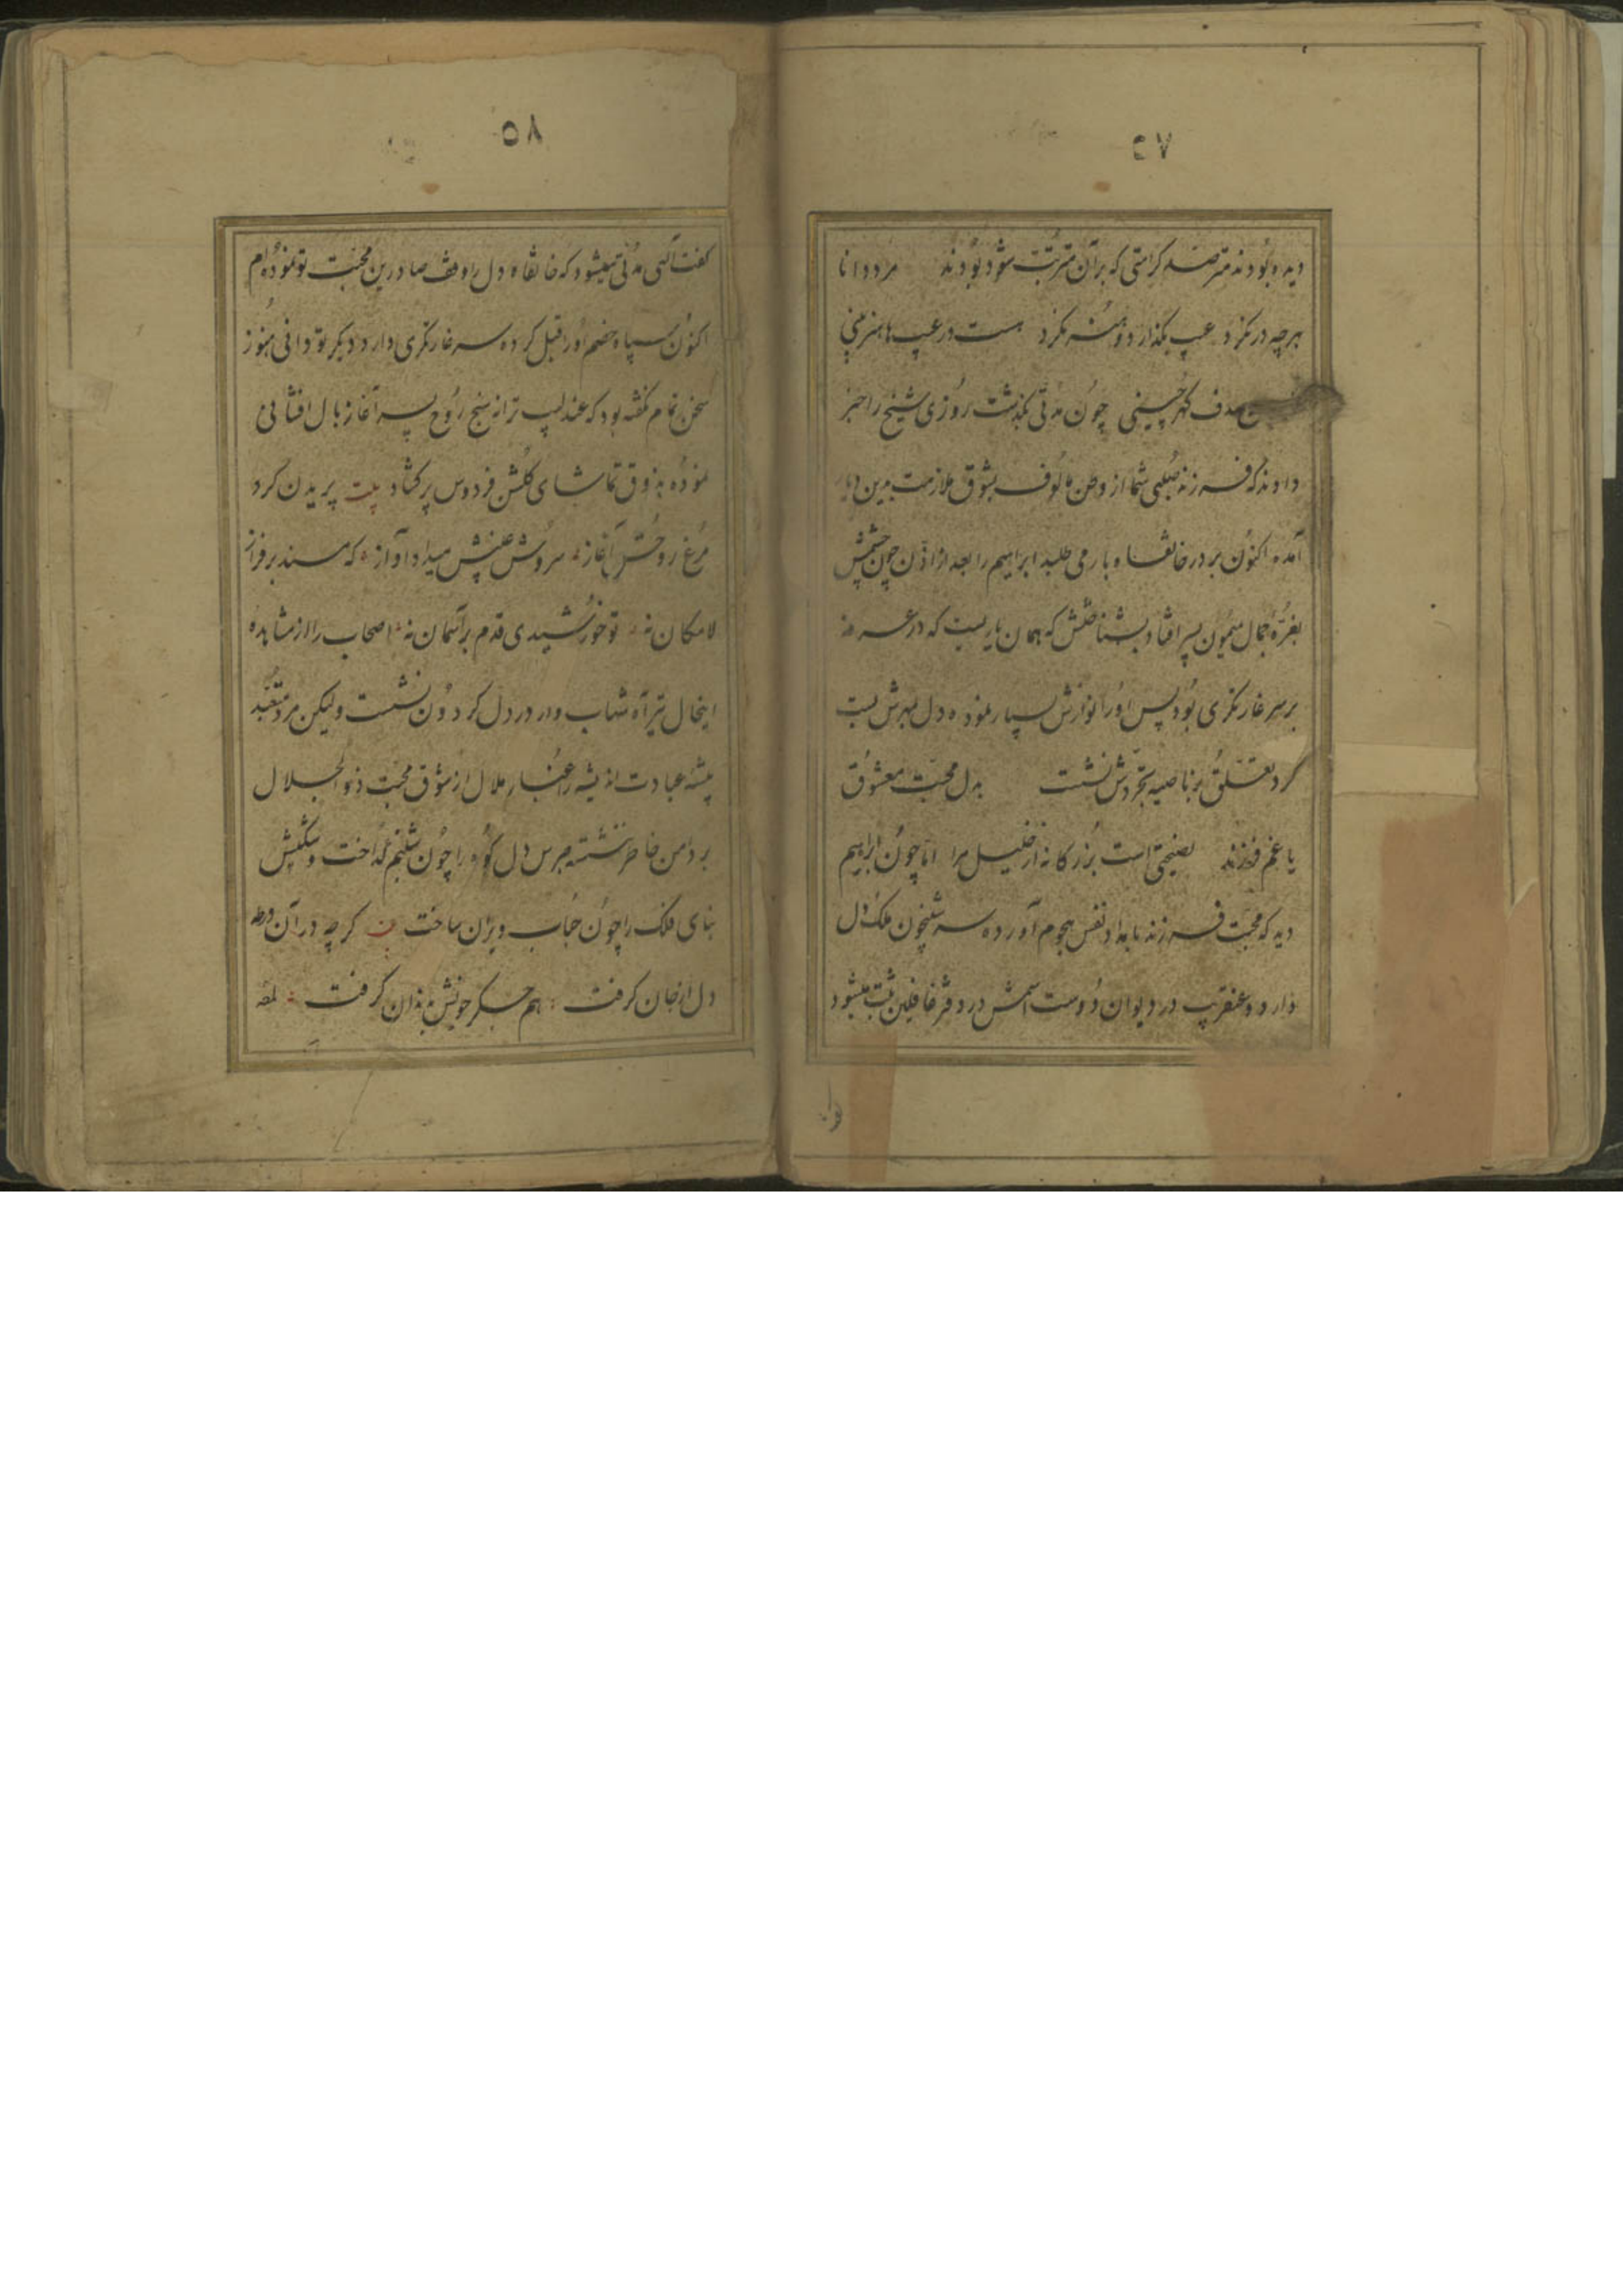 ۵۷
دیده بودند مترصد کرامتی که بر آن مترتب شود بودند مرد دانا
هرچه در نکرد عیب بگذارد و هنر نکرد هست در عیب ها هنر بینی
صدف گهر چینی چون مدتی بگذشت روزی شیخ را خبر
دادند که فرزند صلبی شما از وطن مالوف بشوق ملازمت بدین دیار
آمده اکنون بر در خانقاه بار می طلبد ابراهیم را بعد از اذن چون چشمش
بغرّه جمال میمون پسر افتاد بشناختش که همان یاریست که در
بر سر غارتگری بود پس او را نوازش بسیار نموده دل بمهرش بست
گرد تعلق بر ناصیه تجردش نشست بدل محبت معشوق
یا غم فرزند نصیحتی است بزرگانه از خلیل مرا اما چون ابراهیم
دید که محبت فرزند بامداد نفس هجوم آورده سر شبیخون ملک دل
دارد و عنقریب در دیوان دوست اسمش در دفتر غافلین ثبت میشود
۵۸
گفت الهی مدتی میشود که خانقاه دل را وقف صادرین محبت تو نموده‌ام
اکنون سپاه خصم او را قبل کرده سر غارتگری دارد دیگر تو دانی هنوز
سخن تمام نگفته بود که عندلیب ترانه سنج روح پسر آغاز بال افشانی
نموده بذوق تماشای گلشن فردوس پر گشاد بیت پریدن کرد
مرغ روحش آغاز سروش غیبش میداد آواز که مسند بر فراز
لامکان نه تو خورشیدی قدم بر آسمان نه اصحاب را از مشاهده
اینحال تیر آه شهاب وار در دل گردون نشست ولیکن مرد متعبد
پیشه عبادت اندیشه را غبار ملال از شوق محبت ذو الجلال
بر دامن خاطر ننشسته هرس دل کوه را چون شبنم گداخت و
بنای فلک را چون حباب ویران ساخت گرچه در آن ورطه
دل از جان گرفت هم جگر خویش بدندان گرفت